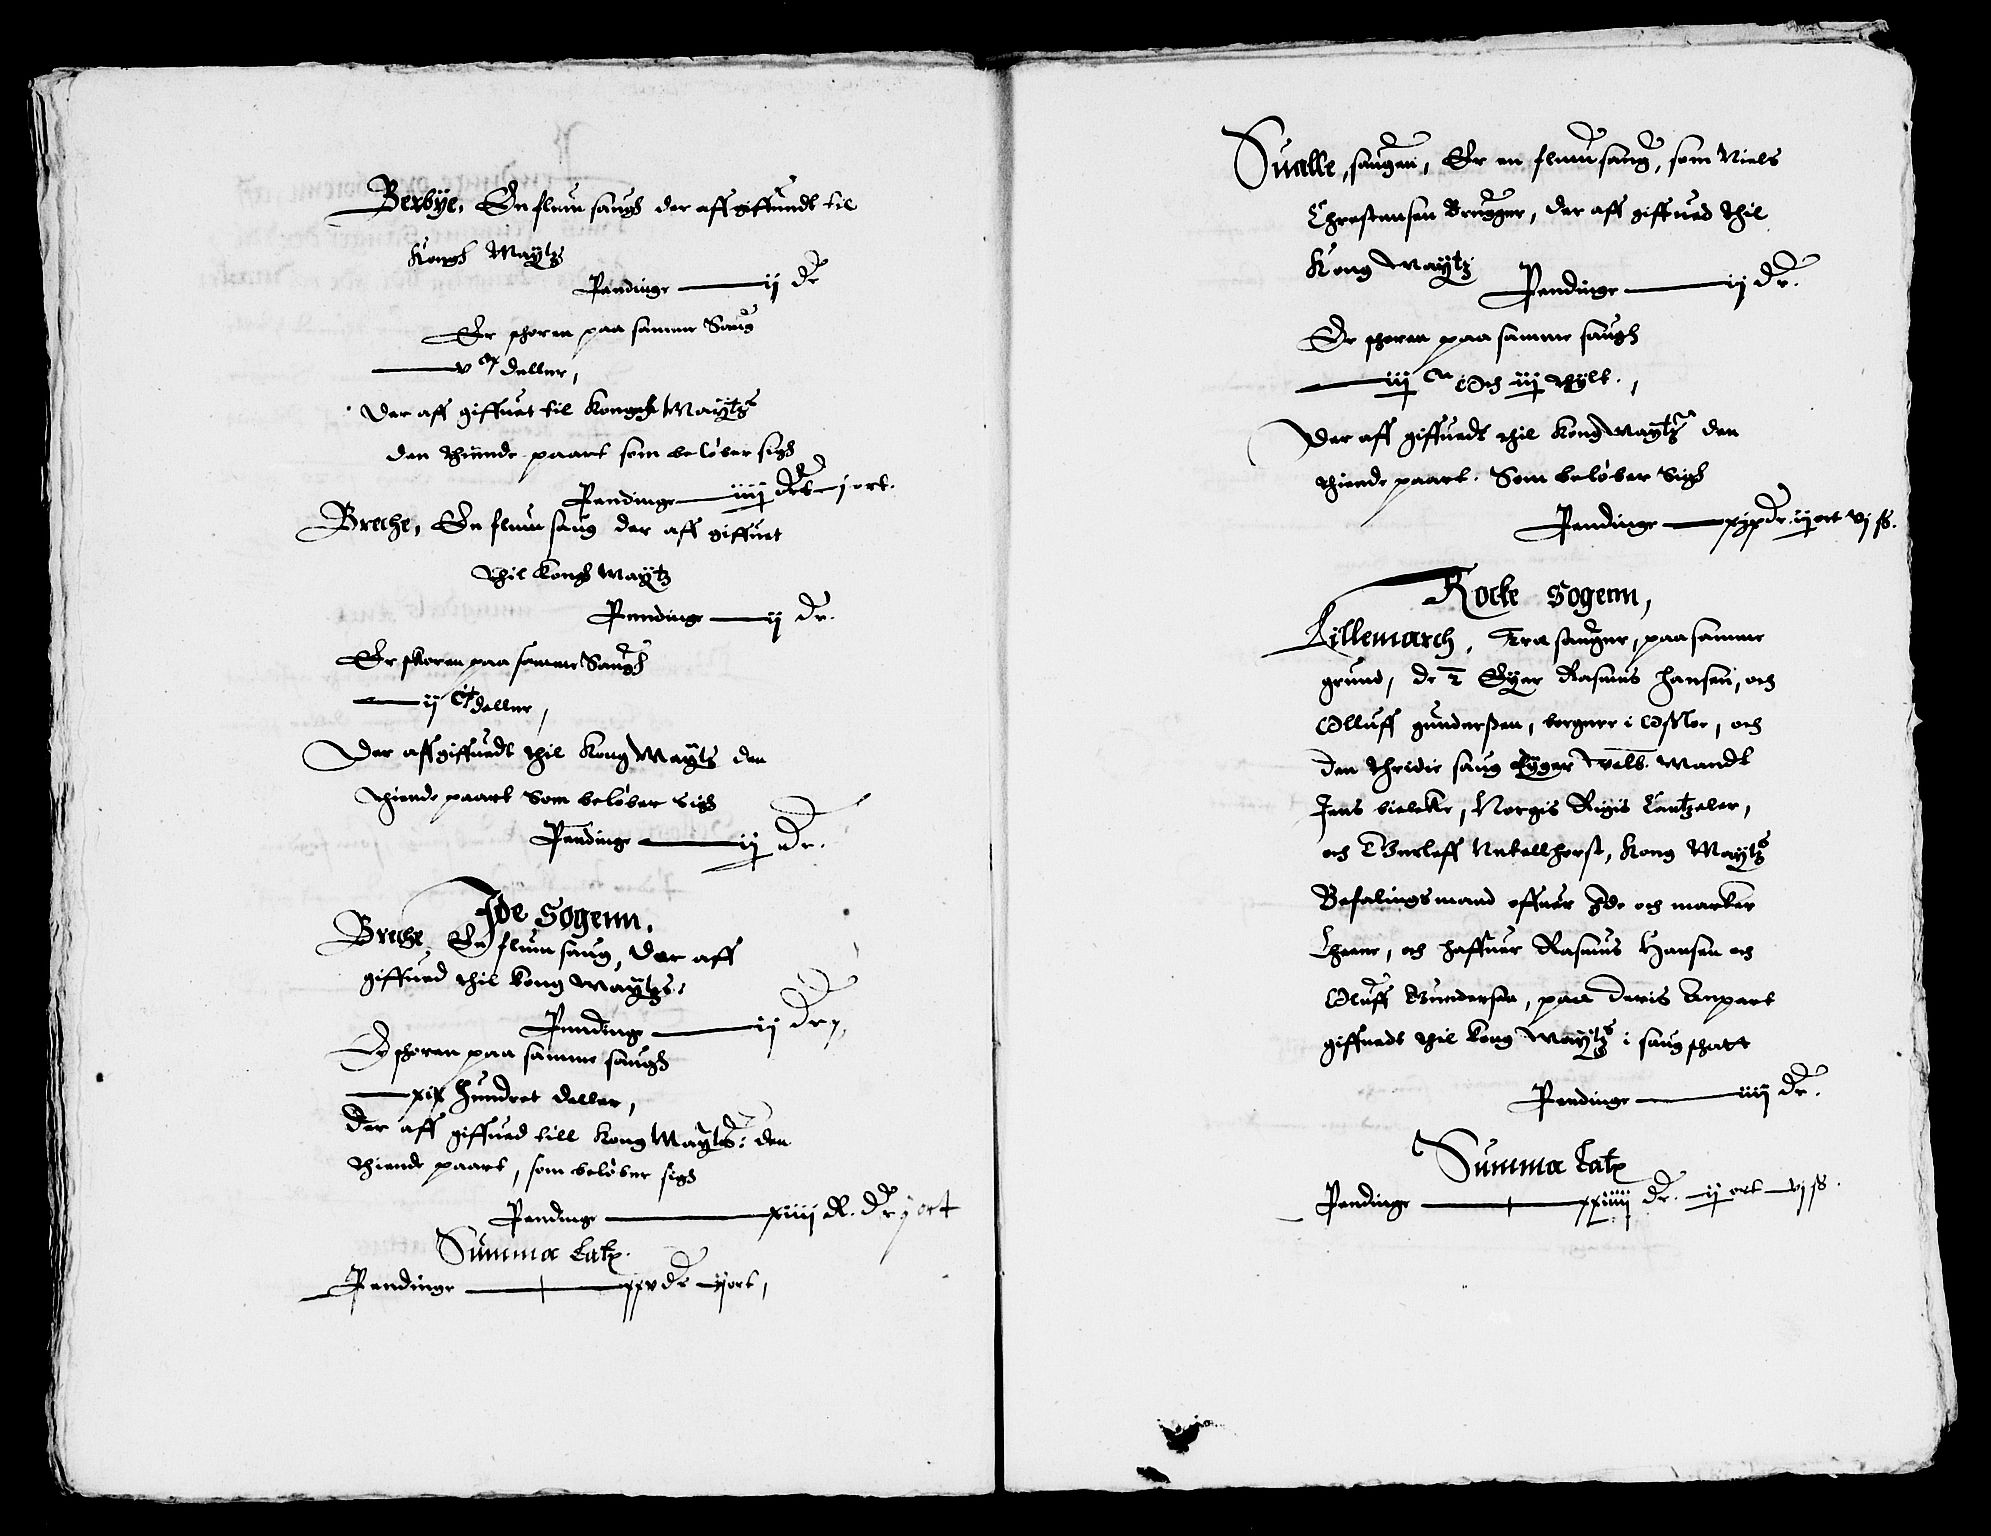 Berbÿe, En flum saugh der aff giffuindt til
Kongh Maÿtz
Pendinge — ij dr
Er skoren paa samme Saug
— v c deller,
Der aff giffuet til Kongeh Maÿtz
den thiende paart som beløber sigh
Pendinge — iiij dr j ort.
Breche, En flum saug der aff giffuet
thil Kongh Maÿtz
Pendinge — ij dr.
Er skoren paa samme Saugh
— ij ct deller,
Der aff giffuedt thil Kong Maÿts den
thiende paart Som beløber Sigh
Pendinge — ij dr.
Jde Sogenn.
Breche En flum saug, Der aff
giffued thil Kong Maÿtz:
Pendinge — ij dr,
Er skoren paa samme saugh
— xix hundret deller,
Der aff giffued till Kong Maÿtz: den
thiende paart, som beløber sigh
Pendinge — xiiij R. dr j ort
Summa Latz.
Pendinge — xxv dr ij ort,
Sualle, saugen, Er en flum saug, som Niels
Chrestensen Brugger, der aff giffued thil
Kong Maÿtz
Pendinge — ij dr.
Er skoren paa samme saugh
— iij c och iij tÿlt.,
Der aff giffuedt thil Kong Maÿtz den
thiende paart. Som beløber Sigh
Pendinge — xix dr. ij ort vj ß.
Rocke Sogenn,
Lillemarch, Tra sauger, paa samme
grund, de 2 Eÿer Rasmus Hansen, och
Olluff gunderßen, borgere i Opsloe, och
den thridie saug eÿger Welb. Mandt
Jens bielcke, Norgis Rigis Cantzeler,
och Gerleff Netellhorst, Kong Maÿtz
Befalings mand offuer Jde och marker
Lheene, och haffuer Rasmus Hansen och
Oluff Gundersen, paa deris Anpart
giffuedt thil Kong Maÿtz i saug skatt
Pendinge — iiij dr.
Summa Latz
Pendinge — xxiiij dr. ij ort vj ß.